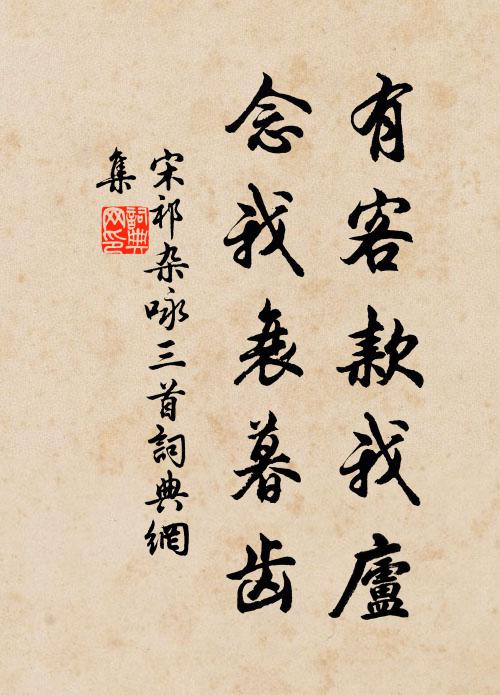 有客款我廬
念我衰暮齿
宋祁杂咏三首詞典網
集
詞典
网印